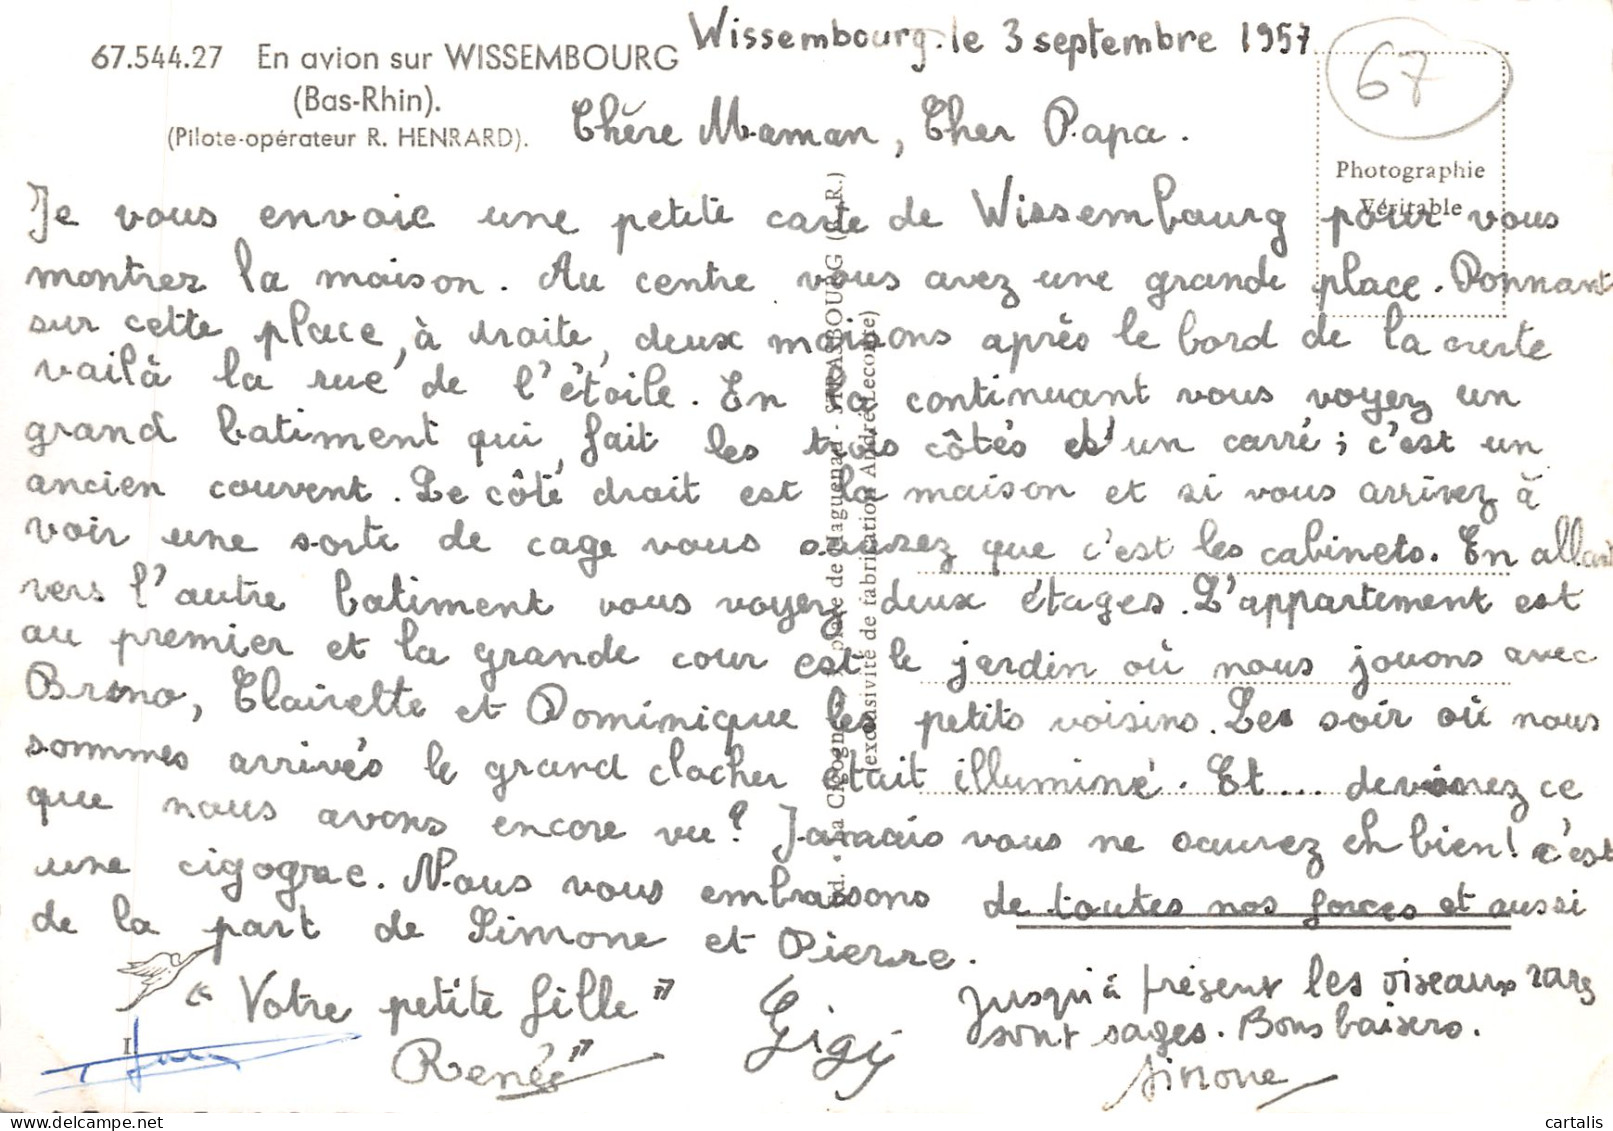 67.544.27 En avion sur WISSEMBOURG
(Bas-Rhin).
(Pilote-opérateur R. HENRARD).
Wissembourg. le 3 septembre 1957
67
Photographie
Véritable
Chère Maman, Cher Papa.
Je vous envoie une petite carte de Wissembourg pour vous
montrer la maison. Au centre vous avez une grande place. Donnant
sur cette place, à droite, deux maisons après le bord de la carte
voilà la rue de l'étoile. En la continuant vous voyez un
grand batiment qui fait les trois côtés d'un carré ; c'est un
ancien couvent. Le côté droit est la maison et si vous arrivez à
voir une sorte de cage vous saurez que c'est les cabinets. En allant
vers l'autre batiment vous voyez deux étages. L'appartement est
au premier et la grande cour est le jardin où nous jouons avec
Bruno, Clairette et Dominique les petits voisins. Le soir où nous
sommes arrivés le grand clocher était illuminé. Et .... devinez ce
que nous avons encore vu ? Jamais vous ne saurez eh bien ! c'est
une cigogne. Nous vous embrassons de toutes nos forces et aussi
de la part de Simone et Pierre.
"Votre petite fille"
Renée"
Gigi
Jusqu'à présent les oiseaux rares
sont sages. Bons baisers.
Simone
Éd. "La Cigogne" place de Haguenau - STRASBOURG (B.R.)
(exclusivité de fabrication André Lecomte)
cartalis